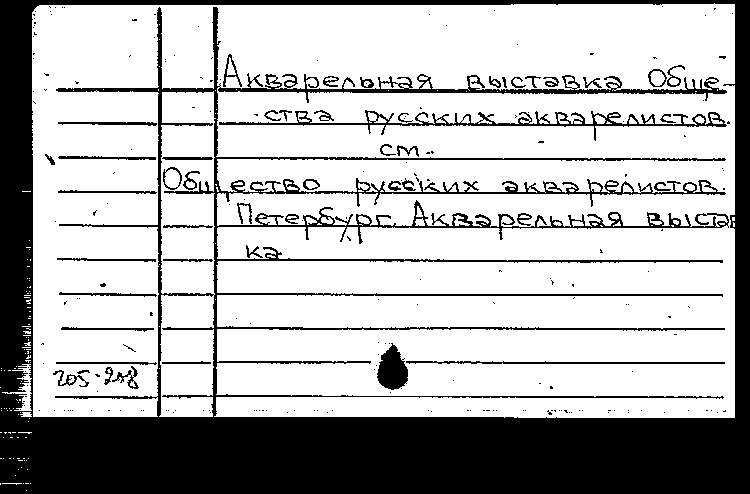 Акварельная выставка Обще-
ства русских акварелистов.
см.
Общество русских акварелистов.
Петербург. Акварельная выстав
ка